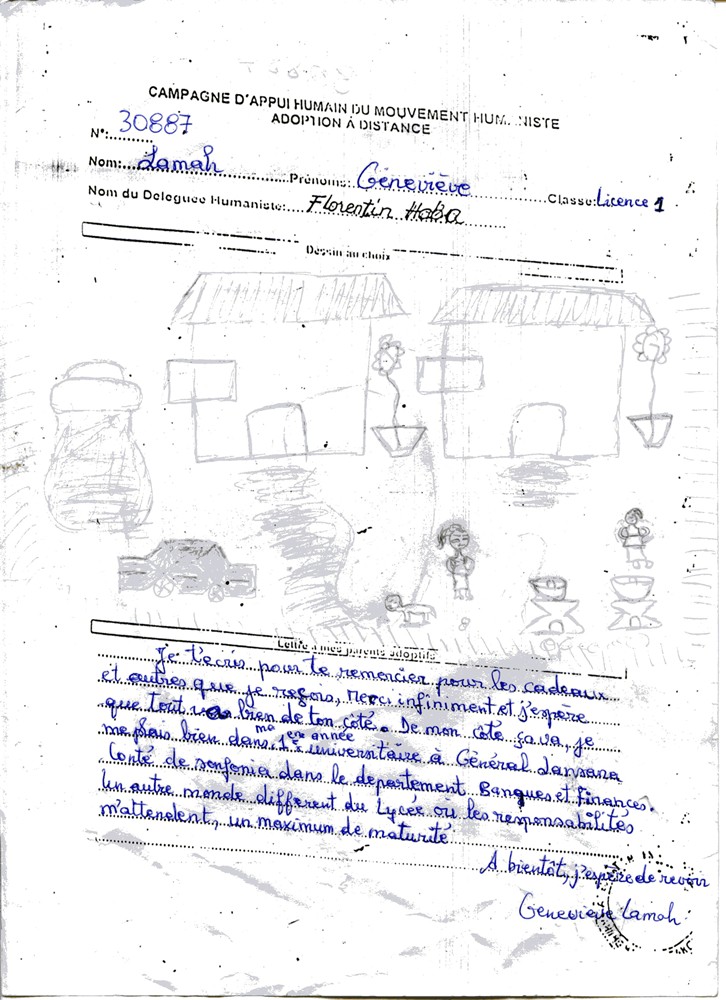 CAMPAGNE D'APPUI HUMAIN DU MOUVEMENT HUM...NISTE
ADOPTION À DISTANCE
N°: 30887
Nom: Lamah Prénoms: Géneviève Classe: Licence 1
Nom du Deleguee Humaniste: Florentin Haba
Dessin au choix
Lettre à mes parents adoptifs
Je t'écris pour te remercier pour les cadeaux
et autres que je reçois, Merci infiniment et j'espère
que tout va bien de ton côté. De mon côté ça va, je
me plais bien dans ma 1ère année universitaire à Général Lansana
Conté de sonfonia dans le departement Banques et Finances.
Un autre monde différent du Lycée où les responsabilités
m'attendent, un maximum de maturité
A bientôt, j'espère de revoir
Genevieve Lamah